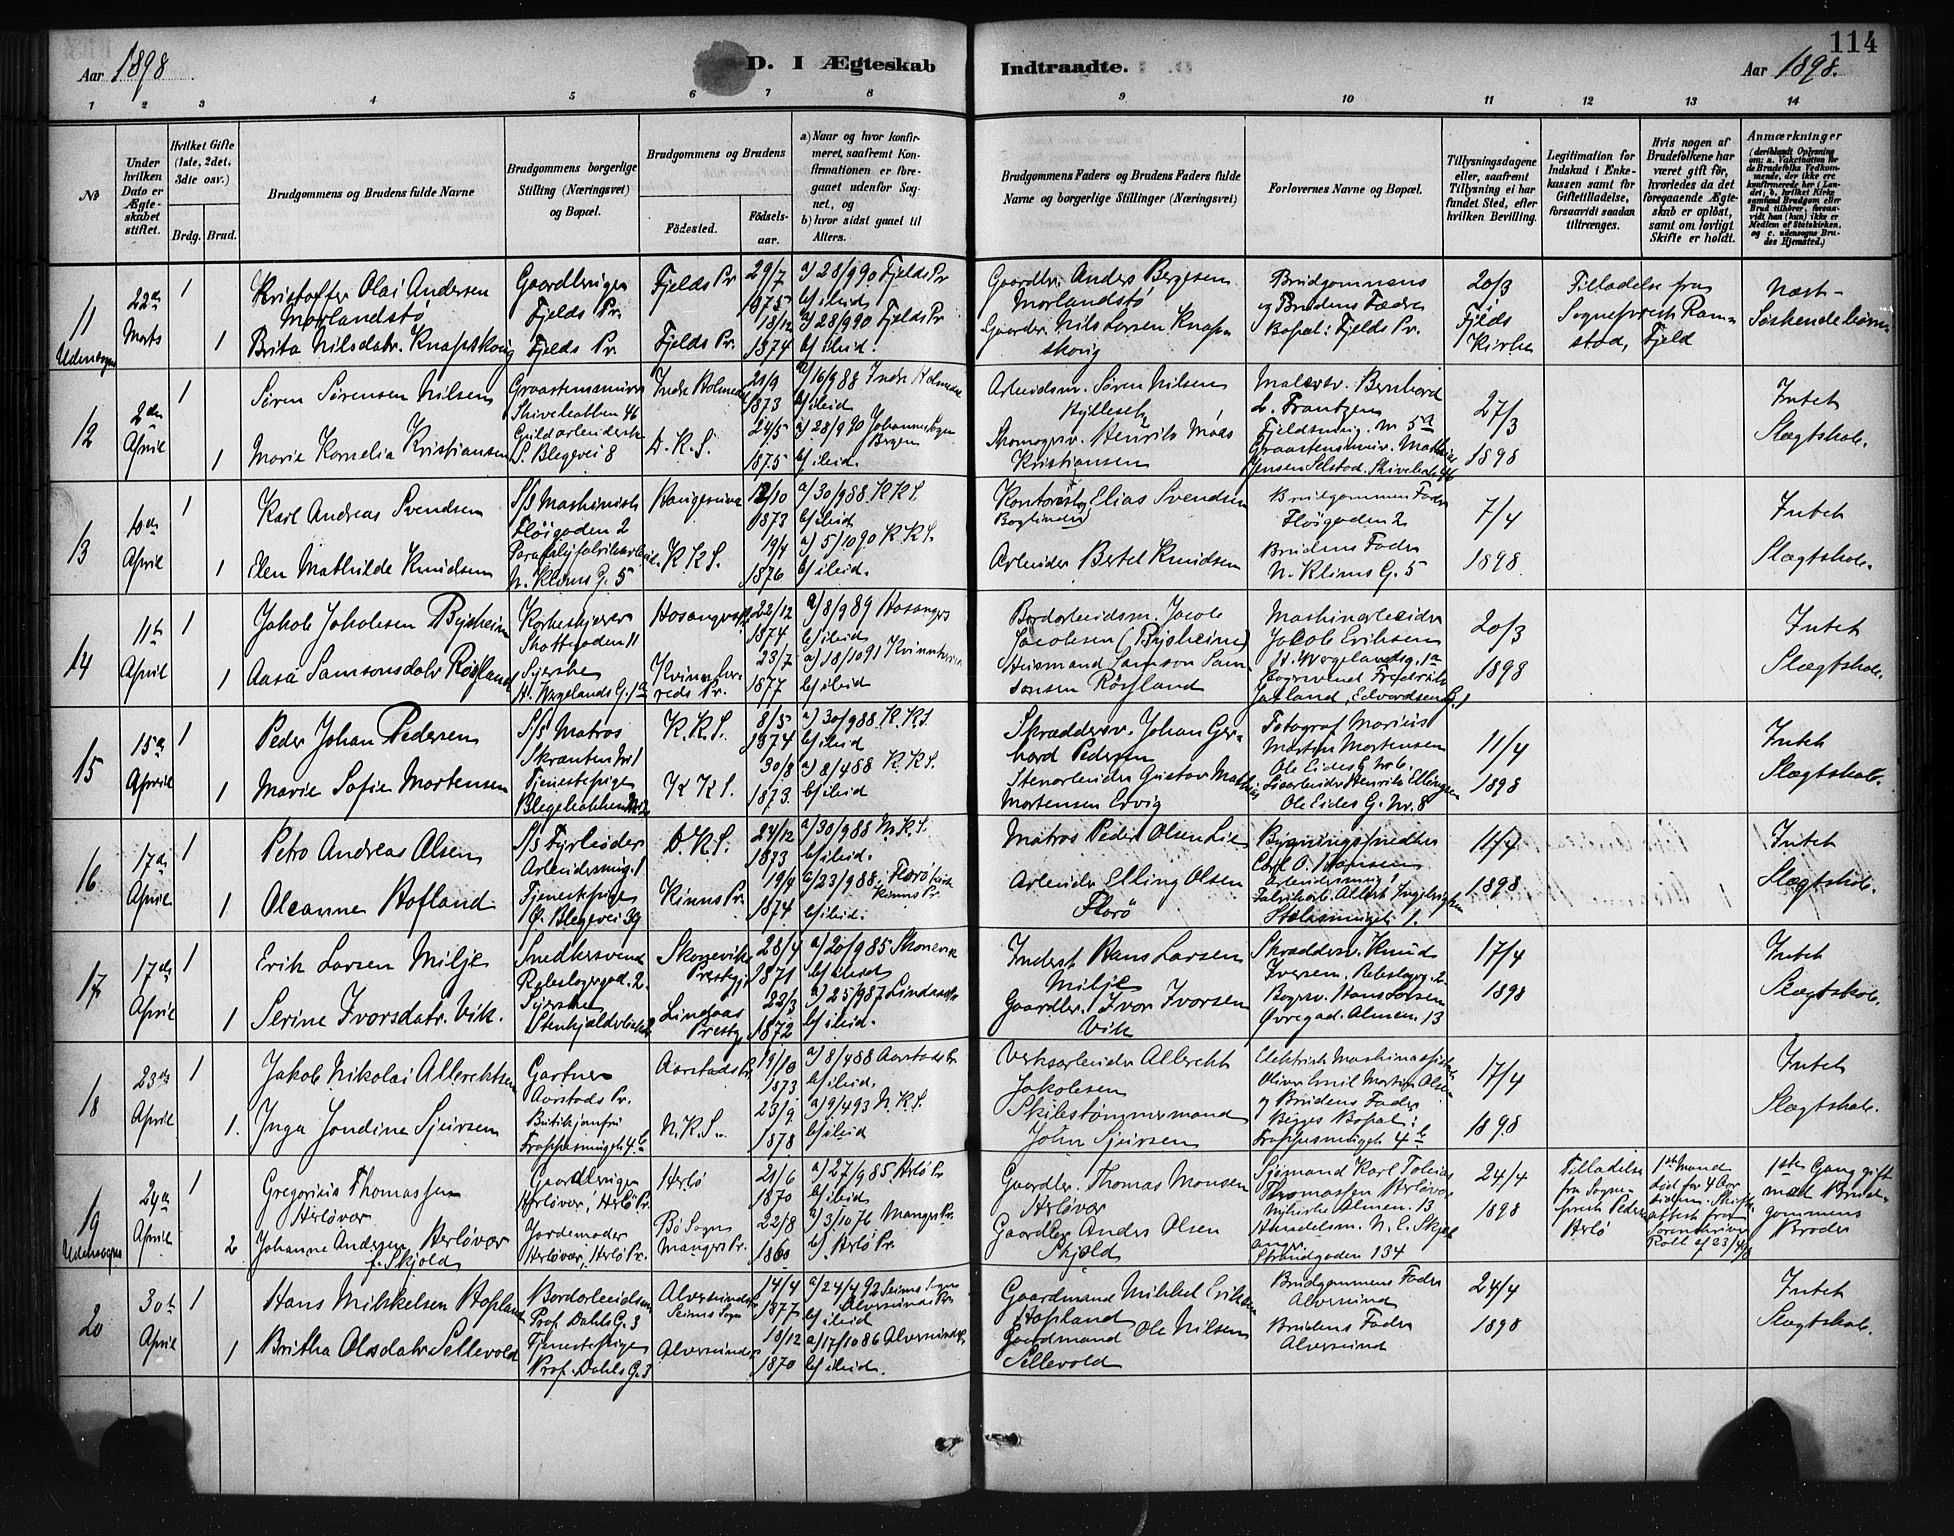 114
Aar 1898
D. I Ægteskab
Indtraadte.
Aar 1898.
1 2 3 4 5 6 7 8 9 10 11 12 13 14
№
Under hvilken Dato er Ægteskabet stiftet.
Hvilket Gifte (1ste, 2det, 3die osv.)
Brdg. Brud.
Brudgommens og Brudens fulde Navne
Brudgommens borgerlige Stilling (Næringsvei) og Bopæl.
Brudgommens og Brudens
Fødested.
Fødselsaar.
a) Naar og hvor konfirmeret, saafremt Konfirmationen er foregaaet udenfor Sognet, og
b) hvor sidst gaaet til Alters.
Brudgommens Faders og Brudens Faders fulde Navne og borgerlige Stillinger (Næringsvei)
Forlovernes Navne og Bopæl.
Tillysningsdagene eller, saafremt Tillysning ei har fundet Sted, efter hvilken Bevilling.
Legitimation for Indskud i Enkekassen samt for Giftetilladelse, forsaavidt saadan tiltrænges.
Hvis nogen af Brudefolkene har været gift før, hvorledes da det foregaaende Ægteskab er opløst, samt om lovligt Skifte er holdt.
Anmærkninger (deriblandt Oplysning om: a. Vakcination for de Brudefolks Vedkommende, der ikke ere konfirmerede her i Landet; b. hvilket Kirkesamfund Brudgom eller Brud tilhører, forsaavidt han (hun) ikke er Medlem af Statskirken, og c. udensogns Brudes Hjemsted.)
11
Udensogns
22de
Marts
1
Kristoffer Olai Andersen
Morlandstø
Gaardbruger
Fjelds Pr.
Fjelds Pr
29/7
1875
a) 28/9 90 Fjelds Pr
b) ibid
Gaardbr. Anders Bergesen
Morlandstø
Brudgommens
og Brudens Fædre
Bopæl: Fjelds Pr.
20/3
Fjelds
Kirke
Tilladelse fra
Sogneprest Ramstad, Fjeld
Næst-
Søskendebørn
1
Brita Nilsdatr. Knapskoug
Fjelds Pr
Fjelds Pr.
18/12
1874
a) 28/9 90 Fjelds Pr
b) ibid.
Gaardbr. Nils Larsen Knapskoug
12
2den
April
1
Søren Sørensen Nilsen
Graastensmurer
Skivebakken 46
Indre Holmedal
21/9
1873
a) 16/9 88 Indre Holmedal
b) ibid
Arbeidsm. Søren Nilsen
Malersv. Bernhard
L. Frantzen
27/3
1898
Intet
Slægtskab.
1
Marie Kornelia Kristiansen
D. K. S.
24/5
1875
a) 28/9 90 Johannes Sogn
Bergen
b) ibid.
Skomagersv. Henrik Moss
Kristiansen
Graastensmur. Mathias
Jensen Selstad. Skivebak. 46
13
10de
April
1
Karl Andreas Svendsen
S/s Maskinist
Fløigaden 2
Haugesund
12/10
1873
a) 30/9 88 K.K.S.
b) ibid
Elias Svendsen
Brudgommens Fader
Fløigaden 2
7/4
1898
Intet
Slægtskab.
1
Elen Mathilde Knudsen
N. Klims G. 5
K. K. S.
19/4
1876
a) 5/10 90 K.K.S.
b) ibid.
Arbeider Bertel Knudsen
Brudens Fader
N. Klims G. 5
14
11te
April
1
Jakob Jakobsen Bysheim
Korkeskjærer
Skottegaden 11
22/12
1874
a) 8/9 89 Hosanger
b) ibid
Bordarbeidsm. Jacob
Jacobsen (Bysheim)
Maskinarbeider
Jakob Eriksen
H. Wergelandsg. 1a
20/3
1898
Intet
Slægtskab.
1
Aasa Samsonsdatr Røsland
Syerske
H. Wergelands G. 1a
Kvinnherreds Pr.
23/7
1877
a) 18/10 91 Kvinnherred
b) ibid
Husmand Samson Samsonsen Røsland
15
15de
April
1
Peder Johan Pedersen
S/s Matros
Skranten Nr 1
K. K. S.
8/5
1874
a) 30/9 88 K.K.S.
b) ibid
Skræddersv. Johan Gerhard Pedersen
Fotograf Marius
Martin Mortensen
Ole Eides G. Nr 6.
11/4
1898
Intet
Slægtskab.
1
Marie Sofie Mortensen
Tjenestepige
K. K. S.
30/8
1873.
a) 8/4 88 K.K.S.
b) ibid
Stenarbeider Gustav Mathias
Mortensen Ervig
Henrik Ellingsen
Ole Eides G. Nr. 8
16
17de
April
1
Petro Andreas Olsen
S/s Fyrbøder
Arbeidersmug. 1
D. K. S.
24/12
1873
a) 30/9 88 N.K.S.
b) ibid.
Matros Peder Olsen Lie
Bygningssnedker
Carl O. Hansen
Arbeidersmug 1
11/4
1898
Intet
Slægtskab.
1
Oleanne Hofland
Tjenestepige
Ø. Blegevei 39
Kinns Pr.
19/9
1874
a) 23/9 88 Florø Kirke
Kinns Pr.
b) ibid.
Arbeider Elling Olsen
Florø
Fabrikarb. Albert Ingebrigtsen
Stølesmuget 1.
17
17de
April
1
Erik Larsen Milje
Snedkersvend
Rebslagergad. 2.
Skonevik
Prestegj.
28/4
1871
a) 20/9 85 Skonevik
b) ibid
Inderst Hans Larsen
Milje
Skræddersv. Knud
Iversen. Rebslagerg. 2.
17/4
1898
Intet
Slægtskab.
1
Serine Ivorsdatr. Vik.
Syerske
Lindaas
Prestg.
22/3
1872
a) 25/9 87 Lindaas Pr
b) ibid.
Gaardbr. Ivor Ivorsen
Vik
Øvregad. Almen. 13
18
23de
April
1
Jakob Nikolai Albrektsen
Gartner
Aarstads Pr.
Aarstads Pr
19/10
1873
a) 8/4 88 Aarstads Pr
b) ibid.
Verksarbeider Albrekt
Jakobsen
Elektrisk Maskinasist.
Oliver Emil Martin Olsen
og Brudens Fader
Begges Bopæl:
Frøppesmuget 4 b
17/4
1898
Intet
Slægtskab.
1.
Inga Jondine Sjursen
Butikjomfru
N. K. S.
23/9
1878
a) 9/4 93 N.K.S.
b) ibid
Skibstømmermand
John Sjursen
19
Udensogns
24de
April
1
Gregorius Thomassen
Herløvær
Gaardbruger
Herløvær, Herlø Pr.
Herlø
21/6
1870
a) 27/9 85 Herlø Pr
b) ibid
Gaardbr. Thomas Monsen
Herløvær
Sjømand Karl Tobias
Thomassen Herløvær
24/4
1898
Tilladelse
fra Sogneprest Peder
Herlø
1ste Mand
død for 4 Aar
siden. Skifteattest fra
Sorenskriver
Roll af 23/4 98
1ste Gang gift
med Brudgommens
Broder
2
Johanne Andersen Herløvær
f. Skjold
Jordemoder
Herløvær, Herlø Pr.
Bø Sogn
Mangers Pr.
22/8
1860
a) 3/10 76 Mangers Pr.
b) Herlø Pr.
Gaardbr Anders Olsen
Skjold
Handelsm. N. E. Skjelanger
Strandgaden 134
20
30te
April
1
Hans Mikkelsen Hopland
Bordarbeidsm
Prof. Dahls G. 3
Alversund
Seims Sogn
14/4
1877
a) 24/4 92 Seims Sogn
Alversunds Pr
b) ibid
Gaardmand Mikkel Eriksen
Hopland
Brudgommens Fader
Alversund
24/4
1898
Intet
Slægtskab.
1
Britha Olsdatr Sellevold
Tjenestepige
Prof. Dahls G. 3
Alversunds
18/12
1870
a) 17/10 86 Alversunds
b) ibid.
Gaardmand Ole Nilsen
Sellevold
Brudens Fader
Alversund